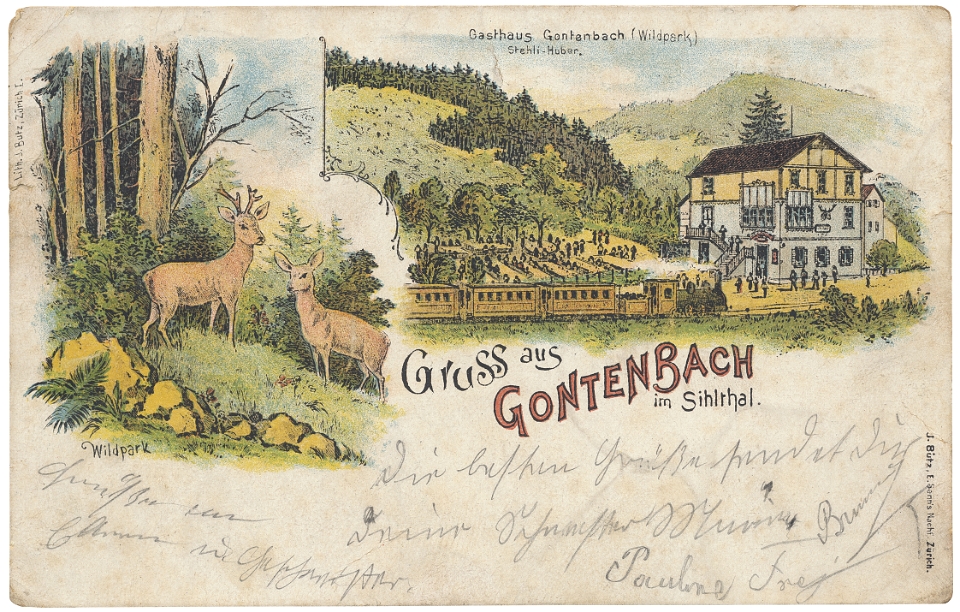 Gasthaus Gontenbach (Wildpark)
Stehli-Huber.
Lith. J. Butz, Zürich I.
Gruss aus
GONTENBACH
im Sihlthal.
Wildpark
J. Butz, E. Sann's Nachf. Zürich.
Die besten Grüße sendet Dir
Deine Schwester
Paulina Frej
Grüße an
Eltern u Geschwister.